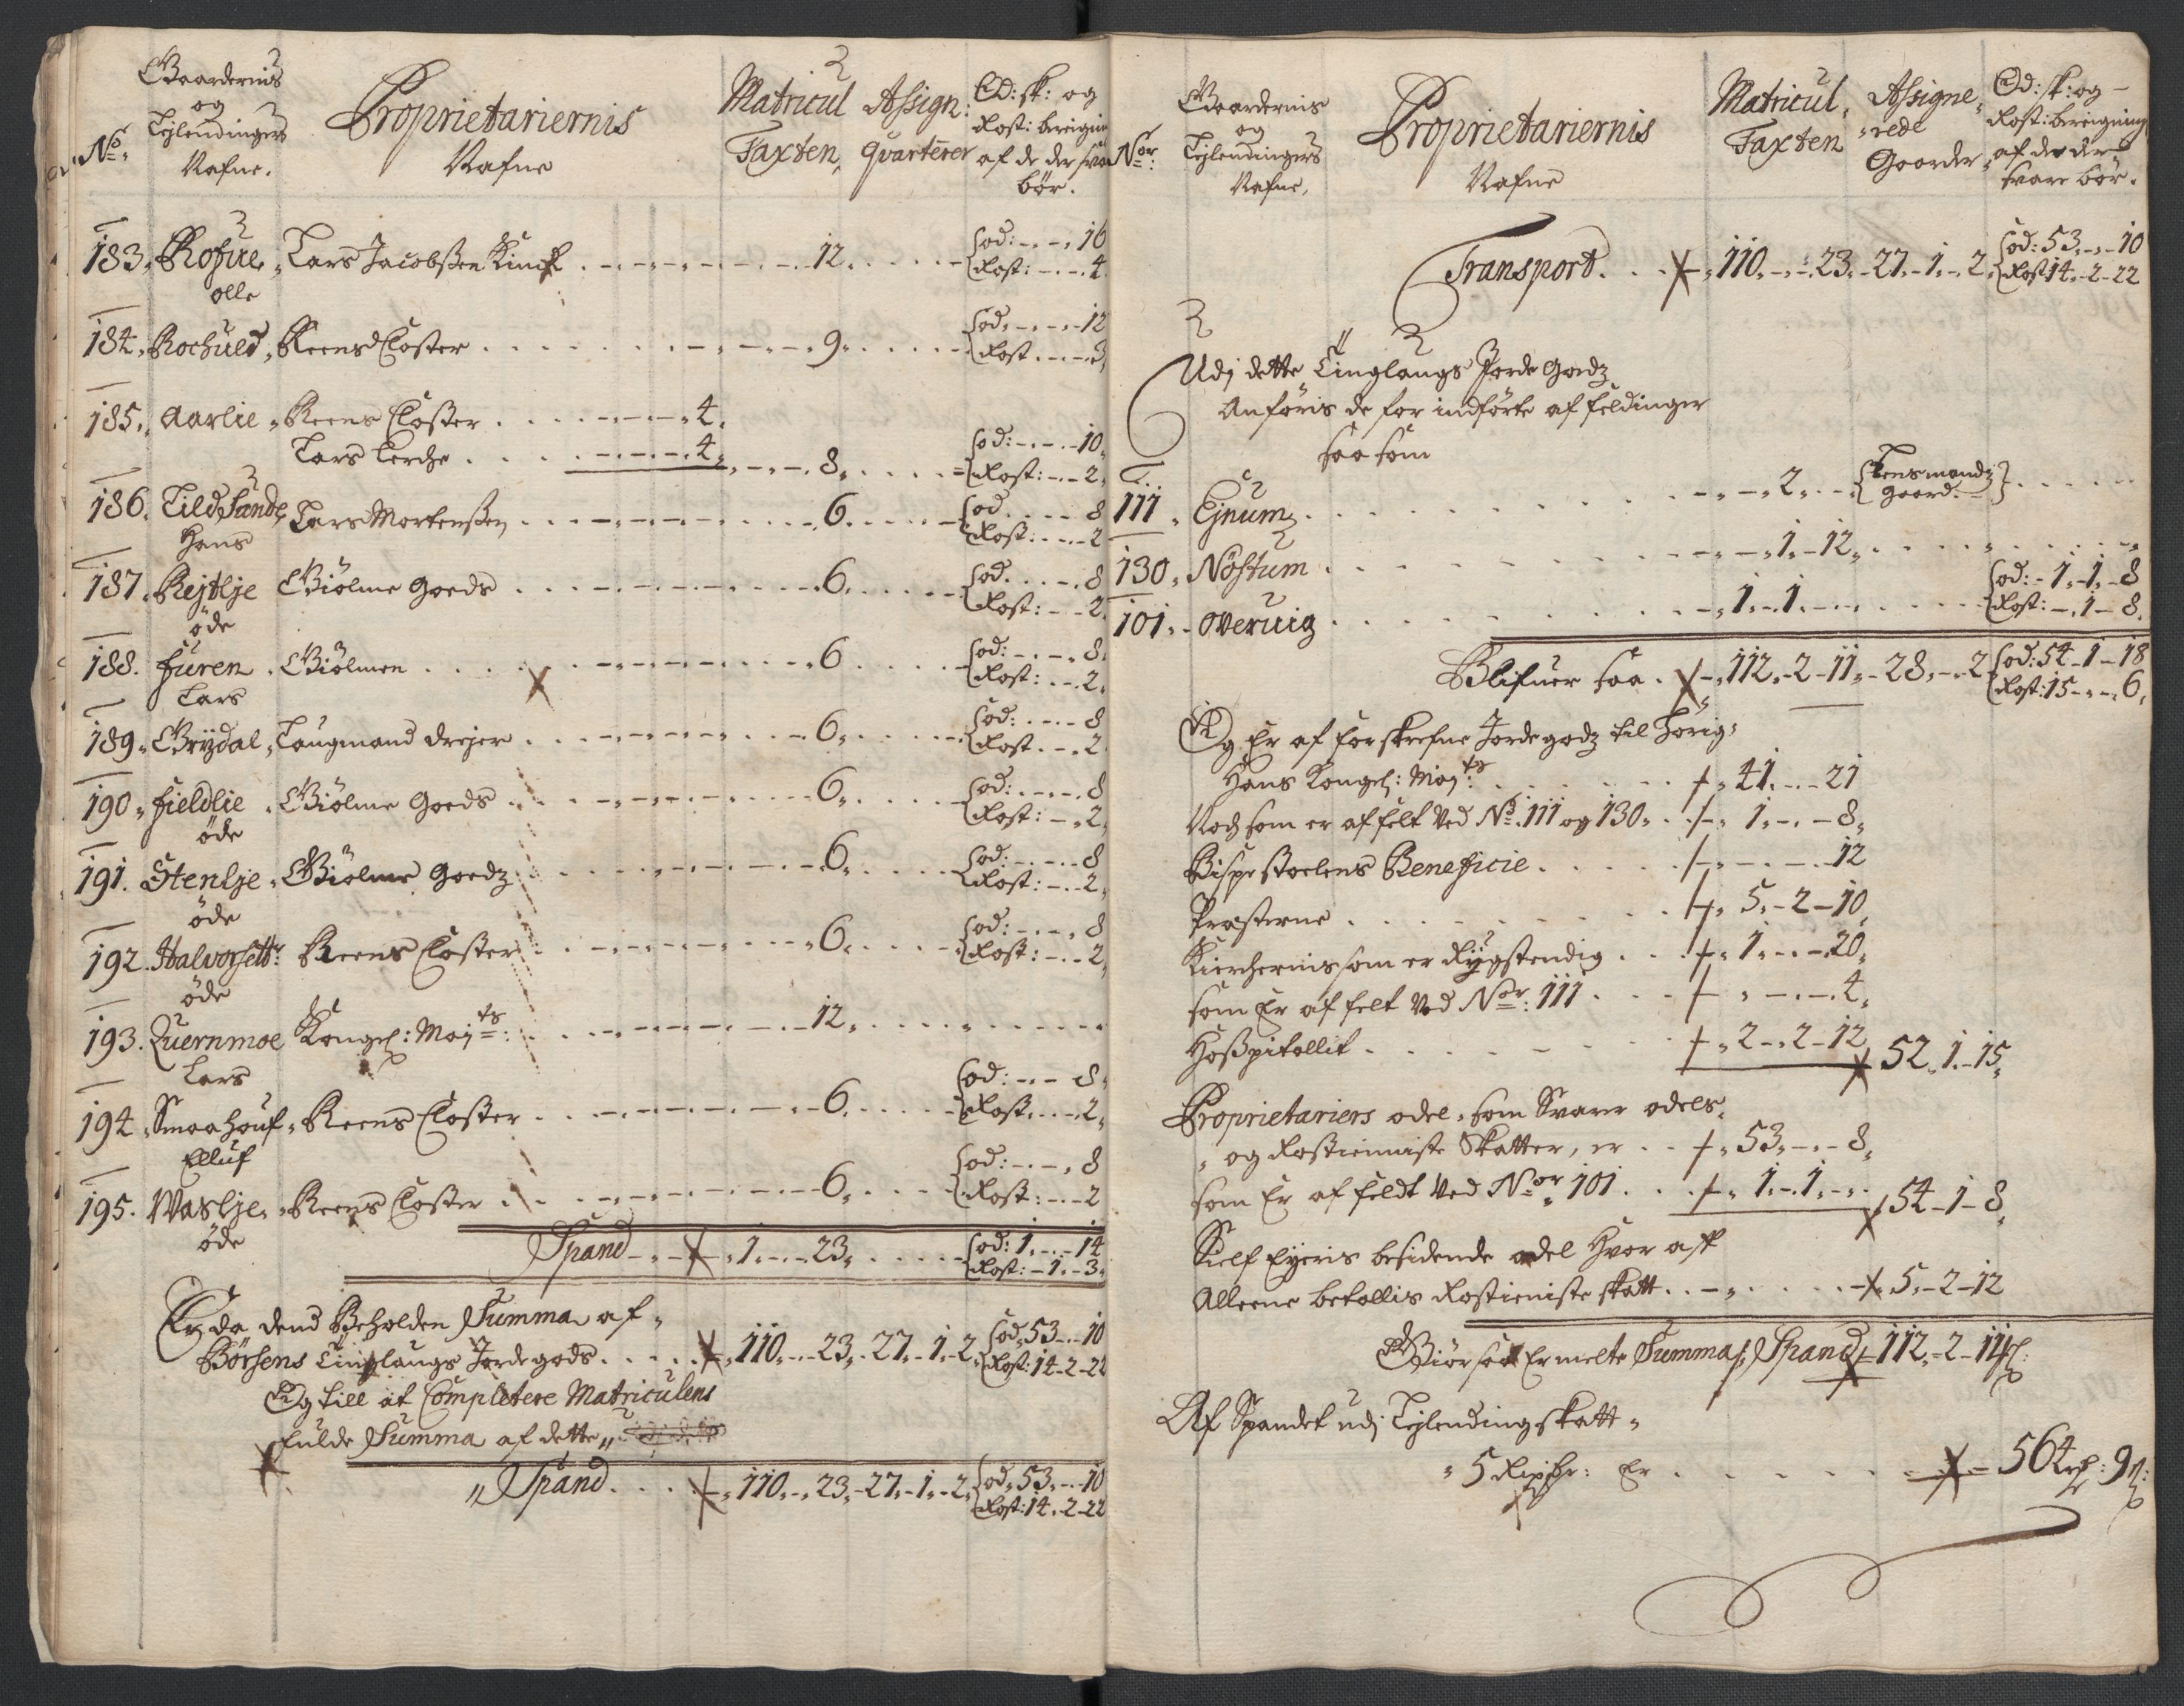 No.
Gaardernis
og
Tejlendingers
Nafne.
Proprietariernis
Nafne
Matricul
Taxten,
Assign:
Qvarterer
Od: sk: og
Rost: berigning
af de der svar
bør.
183. Rofue, Lars Jacobssen Kinck . . . 12. {od: -.-. 16
Olle {Rost: -.-. 4.
184. Rochued, Reens Closter . . . 9. {od. -.-. 12
{Rost . -.- 3,
185. Aarlie, Reens Closter . . . 4.
Lars Lerche . . . 4. 8. {od: -.-. 10,
{Rost: -.- 2,
186. Tildsande, Lars Mortenssen . . . 6. {od . . . 8
Hans {Rost: . -. 2
187. Rejtlje Giølme Goeds . . . 6. {od. . . . 8
øde {Rost: -.- 2.
188. Furen. Giølmen . . . 6 {od: -.-. 8.
Lars {Rost: . -. 2,
189. Grydal, Laugmand Drejer . . . 6. {od: . -.- 8
{Rost . -. 2.
190. Fieldlie. Giølme Goeds . . . 6. {od: . -.-. 8
øde {Rost: -. 2,
191. Stenlje. Giølme Goedz . . . 6. {od: -.-.- 8
øde {Rost: -.- 2,
192. Halvorsett: Reens Closter . . . 6. {od: -.-. 8
øde {Rost: -.- 2,
193. Quernmoe Kongel: Maj ts: . . . 12.
Lars
194. Smaahouf. Reens Closter . . . 6. {od: -.- 8,
Elluf {Rost. -.- 2,
195. Waslje. Reens Closter . . . 6. {od: -.-. 8
øde {Rost: -.- 2
Spand . . 1. -.- 23. . . {od: 1. -.- 14
{Rost: - 1. - 3.
Er da dend Beholden Summa af
Børsens Tinglaugs Jordegods . . . 110. -.- 23. 27. - 1. - 2. {od. 53 -.- 10
{Rost: 14 - 2 - 22
Og till at Completere Matriculens
fulde Summa af dette
Spand . . . 110. -. 23. - 27. - 1. - 2. {od. 53. -.- 10
{Rost: 14. - 2 - 22
Nor:
Gaardernis
og
Tejlendingers
Nafne.
Proprietariernis
Nafne
Matricul,
Taxten
Assigne
rede
Goarder
Od: sk: og
Rost: bereigning
af de der
svare bør.
Transport . . . 110. -.- 23. - 27. - 1. - 2. {od: 53. -.- 10
{Rost 14. - 2 - 22
Udj dette Tinglaugs Jorde Goedz
Anføris de for indførte af feldinger
saa som
111. Ejnum . . . 2. {Lensmandz
Goord. }
130. Nostum . . . 1. - 12.
101. Overuig . . . 1. - 1. . . {od: - 1. - 1. - 8
{Rost: -. 1 - 8.
Blifuer saa . . 112. - 2 - 11. - 28. -. 2 {od: 54 - 1 - 18
{Rost: 15 -.-. 6,
Og Er af forskrefne Jordegodz til Hørig:
Hans Kongel: Maj ts: . . . 41. -.- 21
Noch som er affelt ved No. 111 og 130. . . 1. -.- 8.
Bispe stoelens Beneficie . . . 12
Presterne . . . 5. - 2 - 10.
Kierchernis som er Rygstendig . . . 1. -.- 20,
som Er affelt ved Nor: 111 . . . 4,
Hosspitallit . . . 2 -. 2 - 12
52. 1. 15,
Proprietariers odel, som Svarer odels,
og Rostienniste Skatter, er . . 53. -.- 8,
som Er af feldt ved Nor 101 . . . 1. - 1.
54 - 1 - 8,
Sielf Eyeris besidende odel Hvor aff
Alleene betallis Rostieniste skatt . . . 5. - 2 - 12
Giør saa Ermelte Summa Spand 112. - 2 - 11
Af Spandet udj Tejlending skatt
5 Rixdr: Er . . . 564 rd: 9